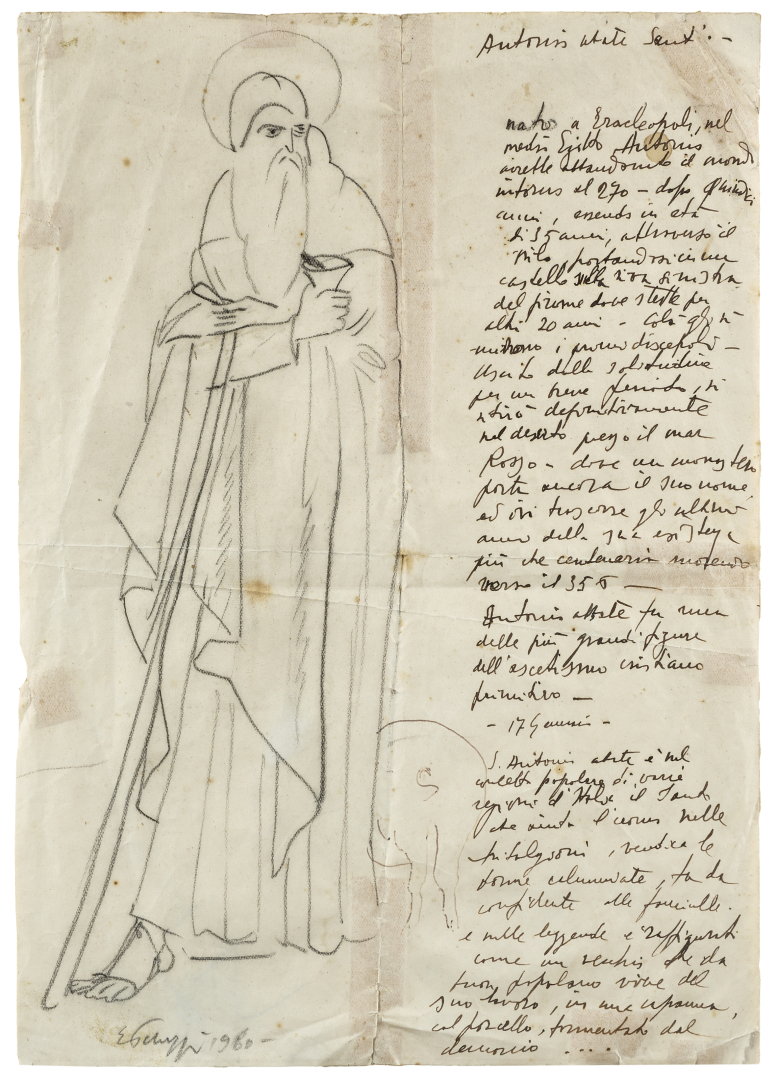 Antonio abate Sant'. -
nato a Eracleopoli, nel
medio Egitto Antonio
avrebbe abbandonato il mondo
intorno al 270 - dopo quindici
anni, essendo in età
di 35 anni, attraversò il
Nilo portandosi in un
castello sulla riva sinistra
del fiume dove stette per
altri 20 anni - Colà gli si
unirono i primi discepoli -
Uscito dalla solitudine
per un breve periodo, si
ritirò definitivamente
nel deserto presso il mar
Rosso - dove un monastero
porta ancora il suo nome
ed ivi trascorse gli ultimi
anni della sua esistenza
più che centenaria morendo
verso il 356 -
Antonio abate fu una
delle più grandi figure
dell'ascetismo cristiano
primitivo -
- 17 Gennaio -
S. Antonio abate è nel
concetto popolare di varie
regioni d'Italia il Santo
che aiuta l'uomo nelle
tribolazioni, vendica le
donne calunniate, fa da
confidente alle fanciulle.
e nelle leggende è raffigurato
come un vecchio che da
buon popolano vive del
suo lavoro, in una capanna,
col porcello, tormentato dal
demonio ....
1960 -